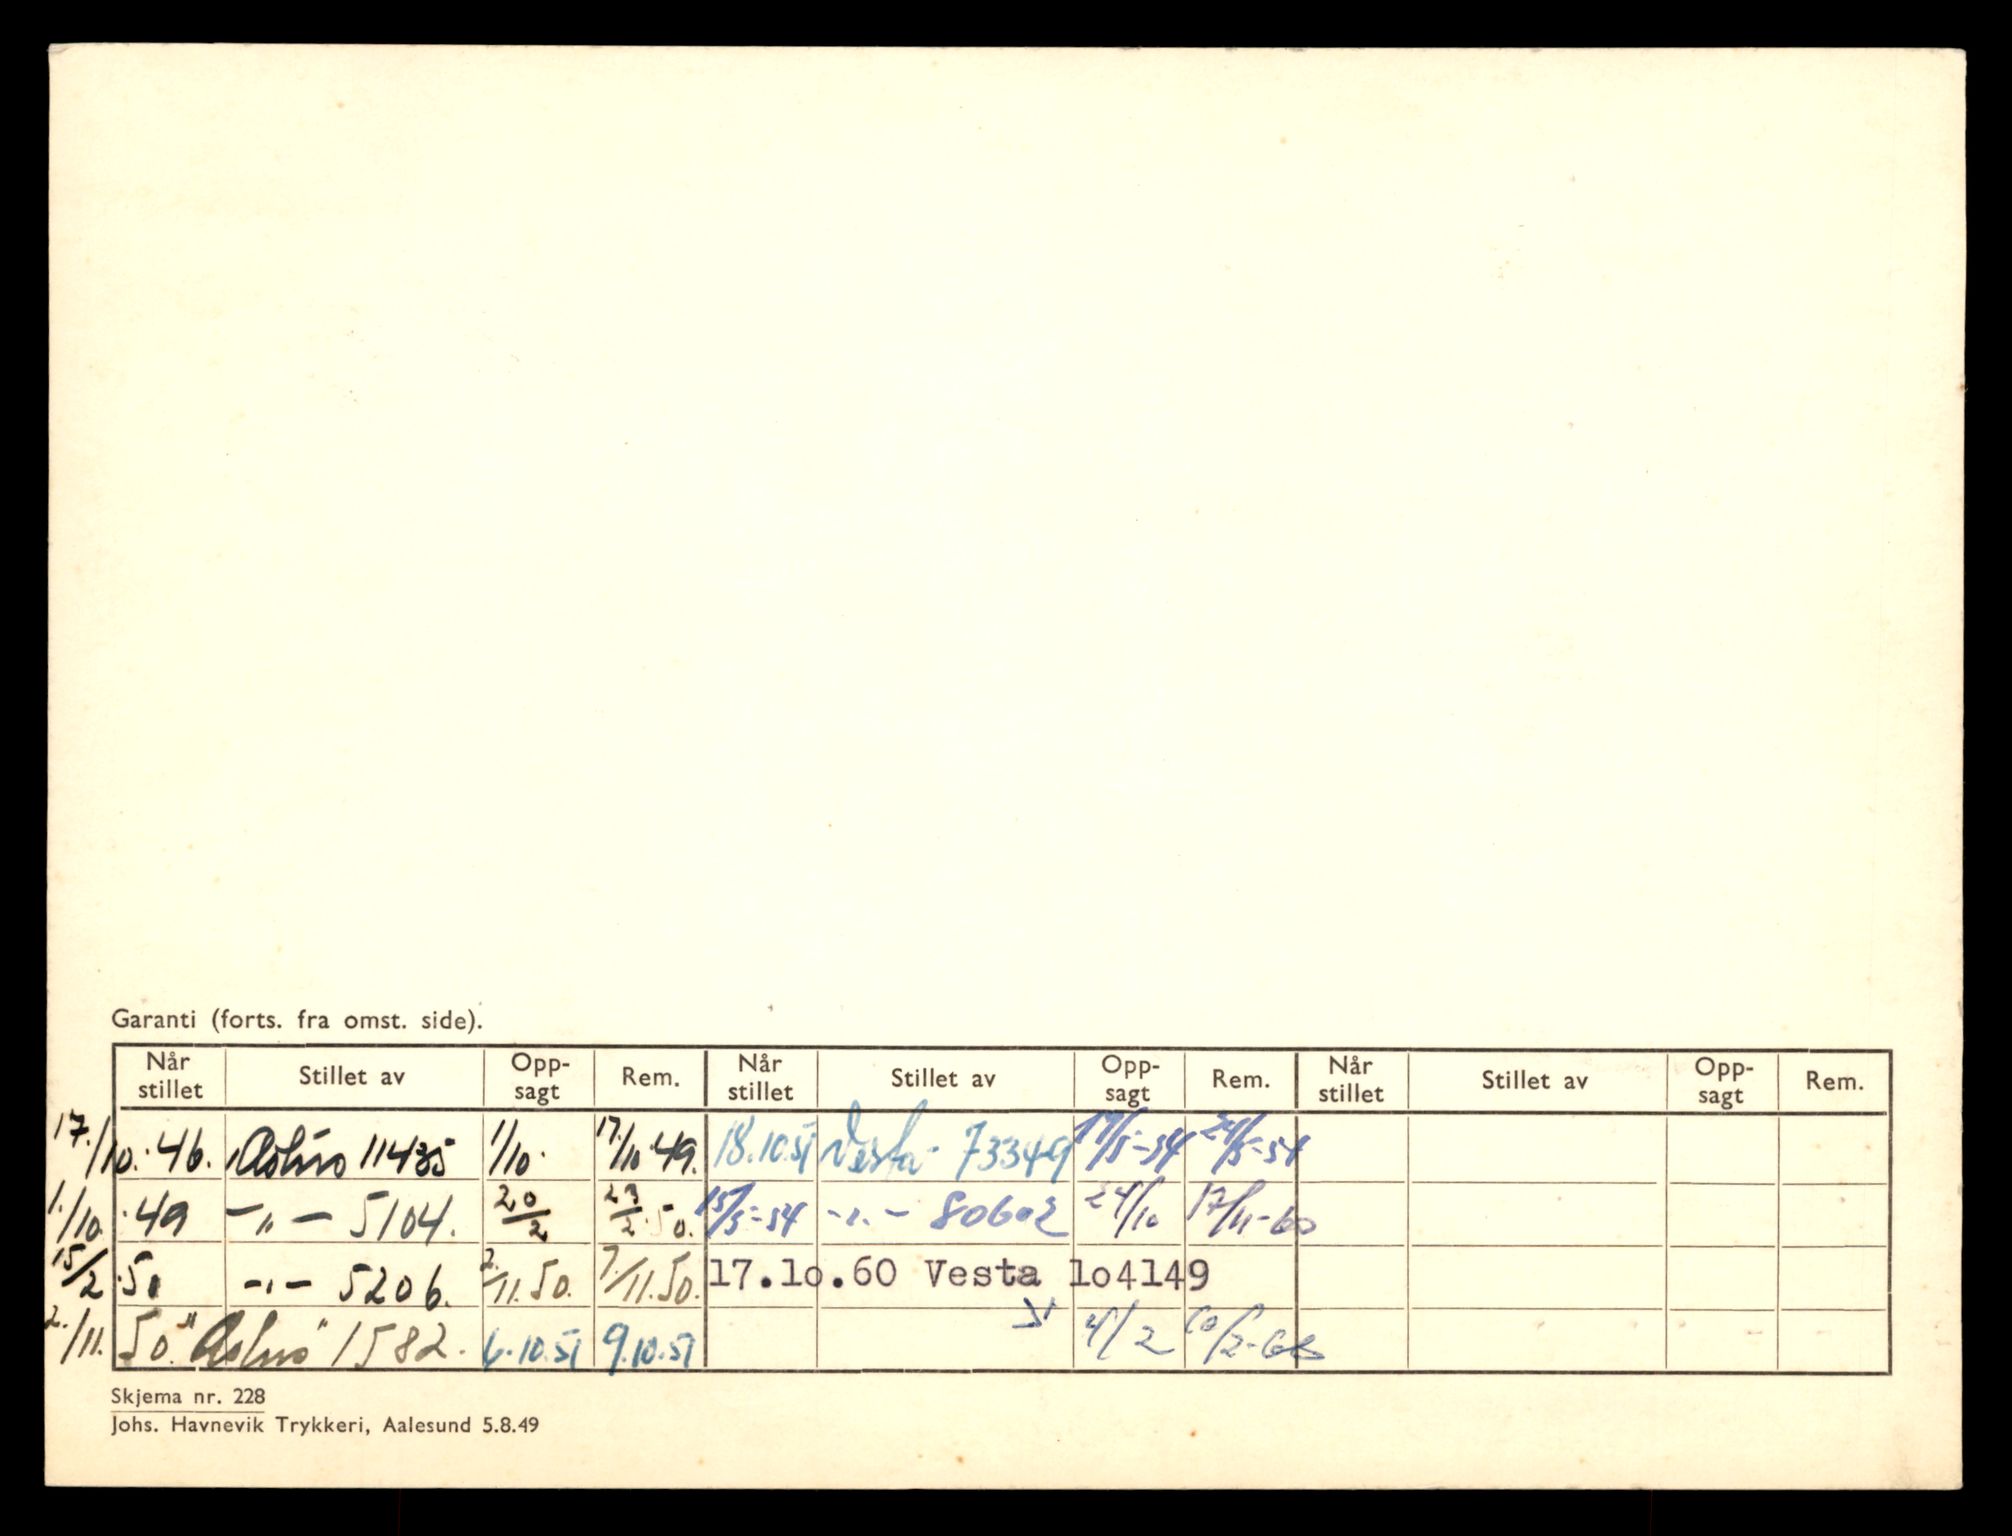 Garanti (forts. fra omst. side).
Når stillet Stillet av Opp-sagt Rem. Når stillet Stillet av Opp-sagt Rem. Når stillet Stillet av Opp-sagt Rem.
17./10.·46. 11435 1/10· 17./10·49. 18.10.51 Vesta 73349 19/5-54 24/5-54
1./10.·49 -„- 5104. 20/2 23/2·50. 15/5-54 -„- 80602 24/10 17/11-60
15/2·50 -„- 5206. 2./11.50. 7./11.50. 17.1o.60 Vesta 1o4149
2./11.50. 1582. 6.10.51 9.10.51 4/2 /2-68
Skjema nr. 228
Johs. Havnevik Trykkeri, Aalesund 5.8.49